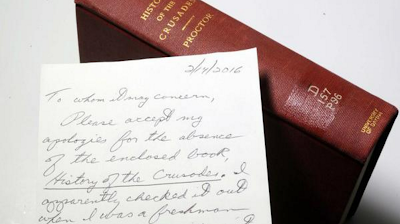 HISTORY
OF THE
CRUSADES
PROCTOR
D
157
P96
UNIVERSITY
OF DAYTON
2/14/2016
To whom it may concern,
Please accept my
apologies for the absence
of the enclosed book,
History of the Crusades. I
apparently checked it out
when I was a freshman